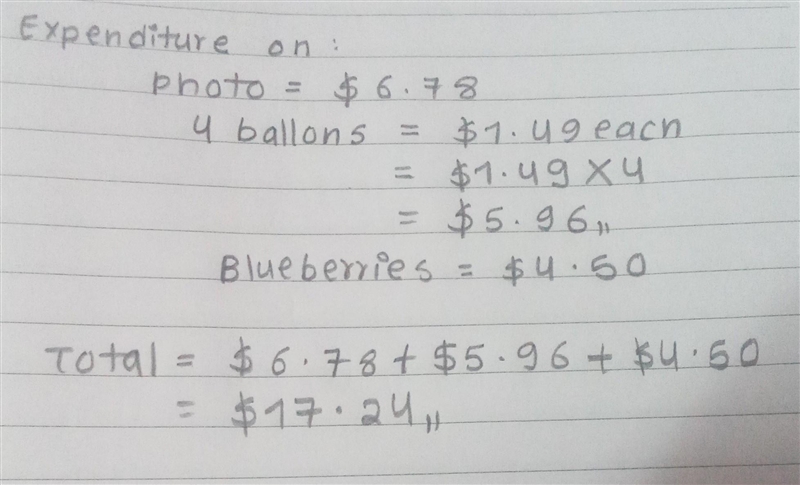 Expenditure on :
Photo = $ 6.78
4 ballons = $1.49 each
= $1.49 X 4
= $5.96 ,,
Blueberries = $4.50
Total = $ 6.78 + $5.96 + $4.50
= $17.24 ,,